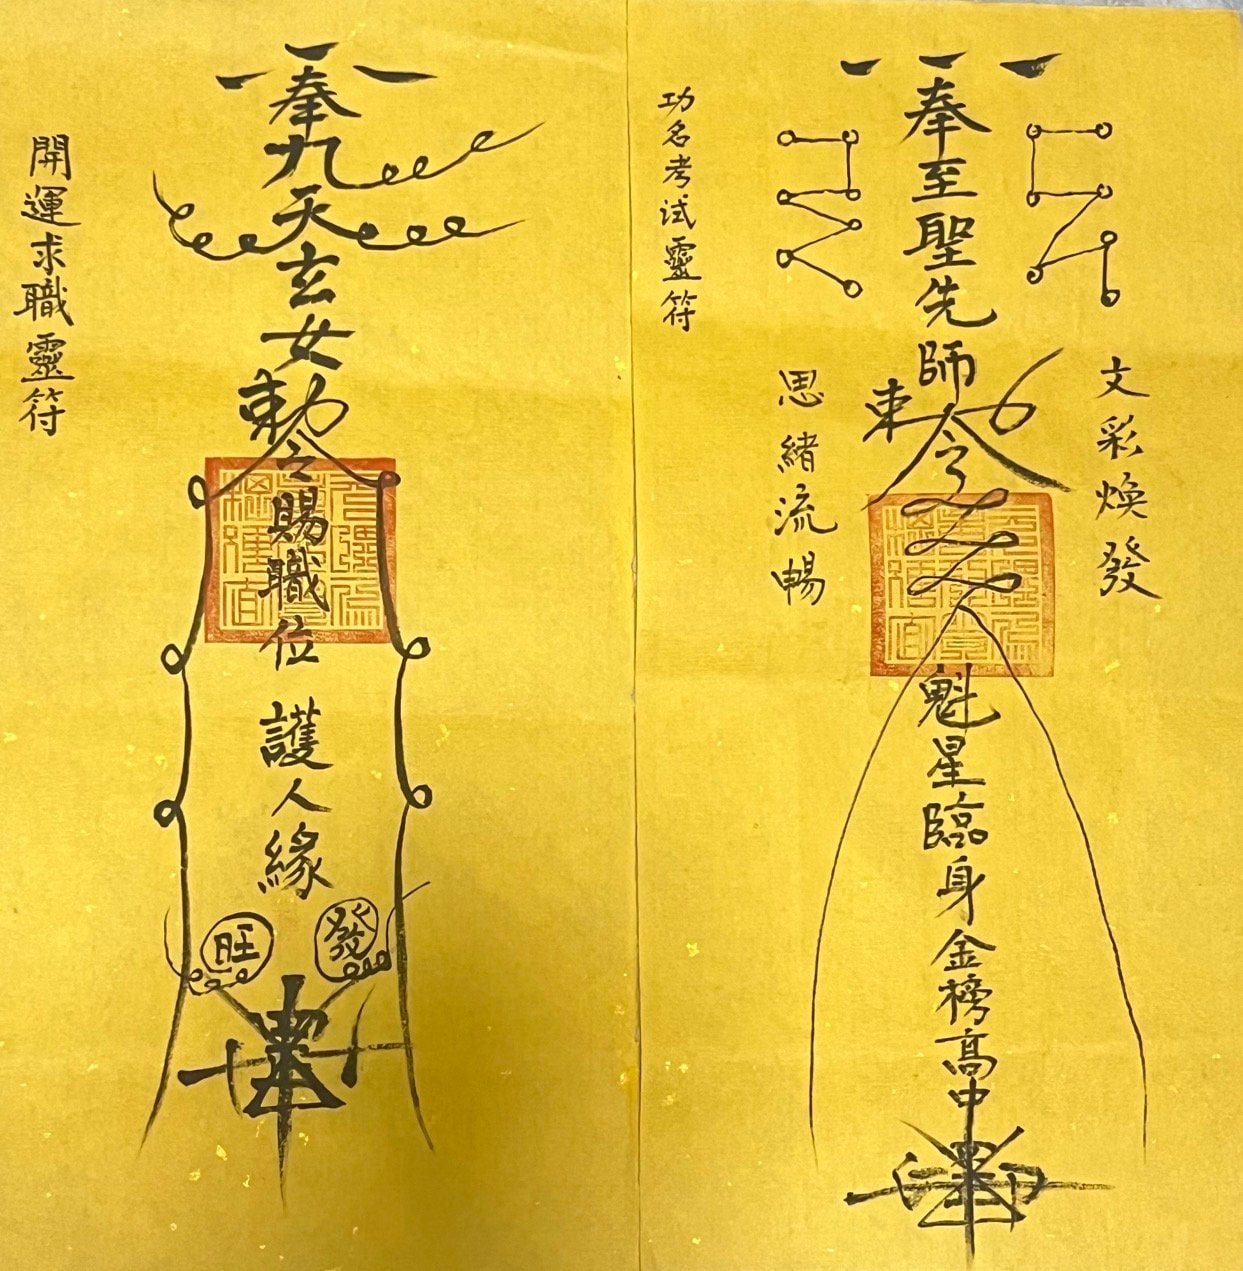 功名考试靈符
文彩煥發
奉至聖先師
敕令
魁星臨身金榜高中
思緒流暢
開運求職靈符
奉九天玄女
敕令
賜職位護人緣
旺
發